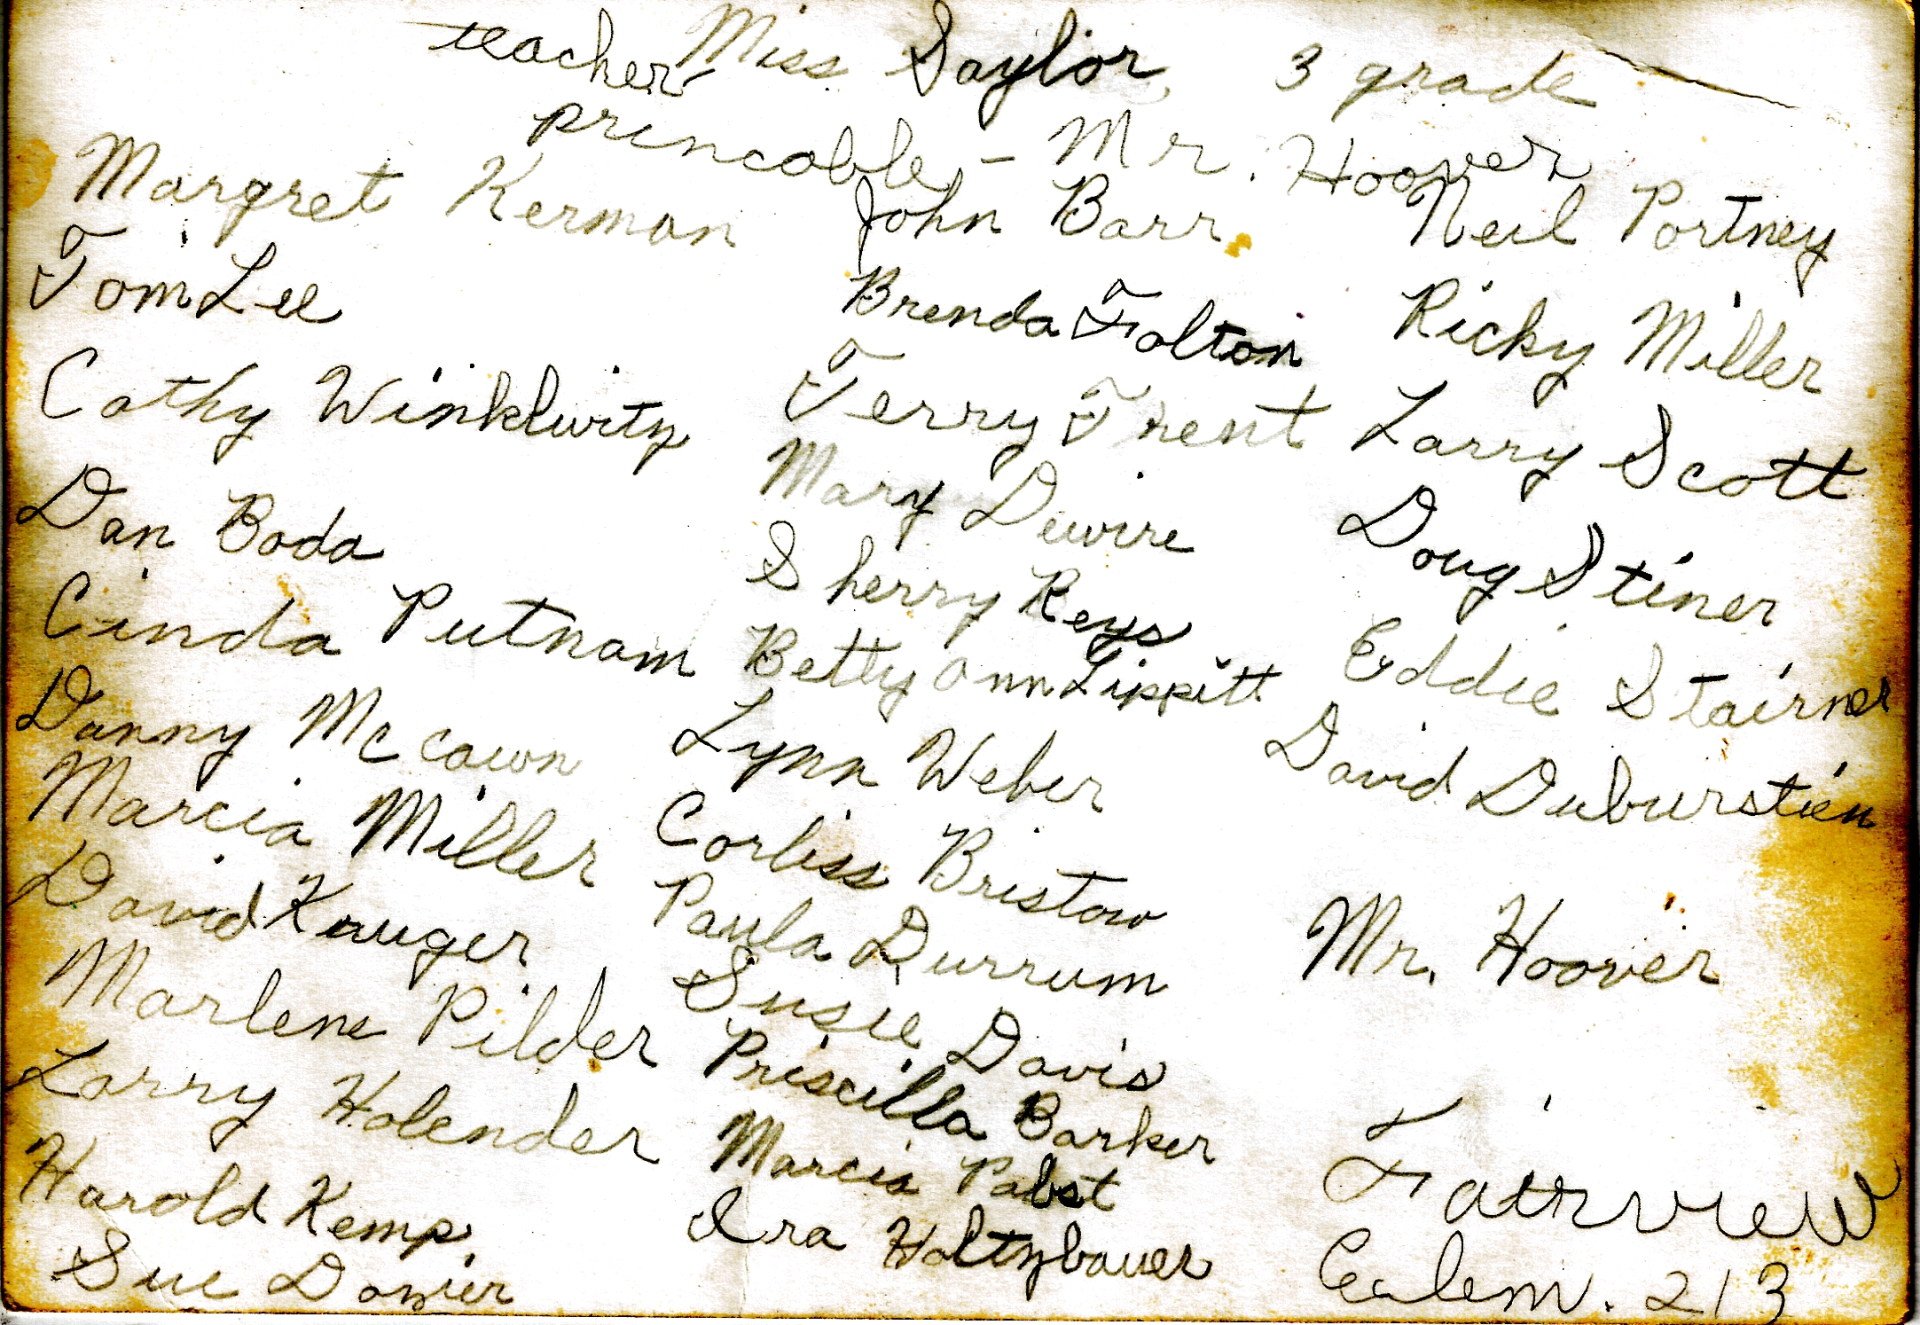 teacher Miss Saylor, 3 grade
princable - Mr. Hoover
Margret Kerman
Tom Lee
Cathy Winklwitz
Dan Boda
Cinda Putnam
Danny Mc cawn
Marcia Miller
David Kruger
Marlene Pilder
Larry Holender
Harold Kemp
Sue Dozier
John Barr
Brenda Folton
Terry Trent
Mary Dewire
Sherry Keys
Betty Ann Lippitt
Lynn Weber
Corliss Bristow
Paula Durrum
Susie Davis
Priscilla Barker
Marcia Pabst
Ira Holtzbauer
Neil Portney
Ricky Miller
Larry Scott
Doug Stiner
Eddie Stairner
David Duburstien
Mr. Hoover
Fairview
Ealem. 213